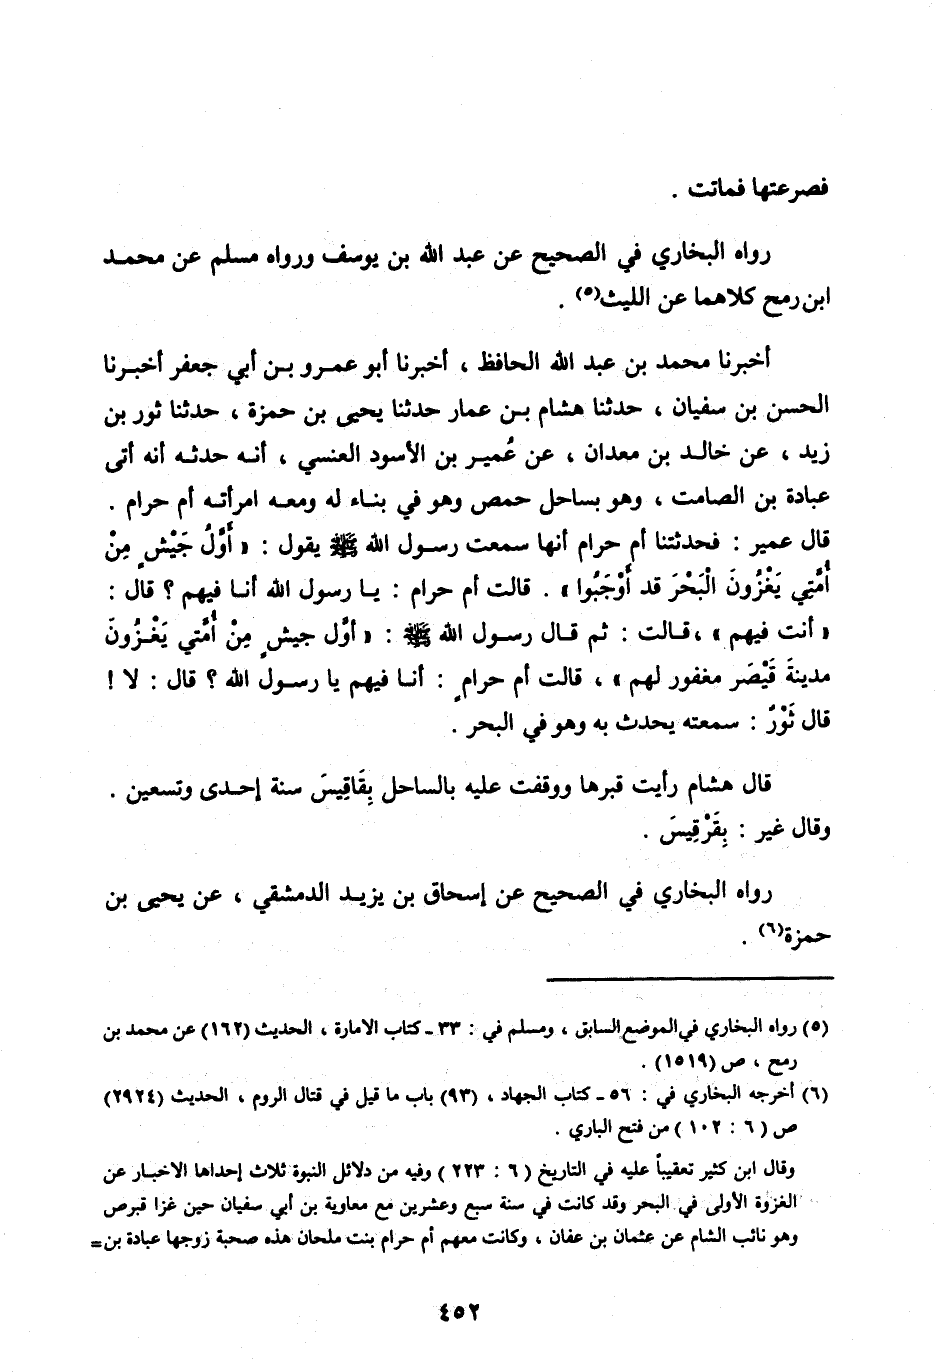 فصرعتها فماتت .
رواه البخاري في الصحيح عن عبد الله بن يوسف ورواه مسلم عن محمد
ابن رمح كلاهما عن الليث(٥) .
أخبرنا محمد بن عبد الله الحافظ ، أخبرنا أبو عمرو بن أبي جعفر أخبرنا
الحسن بن سفيان ، حدثنا هشام بن عمار حدثنا يحيى بن حمزة ، حدثنا ثور بن
زيد ، عن خالد بن معدان ، عن عُمير بن الأسود العنسي ، أنه حدثه أنه أتى
عبادة بن الصامت ، وهو بساحل حمص وهو في بناء له ومعه امرأته أم حرام .
قال عمير : فحدثتنا أم حرام أنها سمعت رسول الله ﷺ يقول : « أَوَّلُ جَيْشٍ مِنْ
أُمَّتِي يَغْزُونَ الْبَحْرَ قد أَوْجَبُوا » . قالت أم حرام : يا رسول الله أنا فيهم ؟ قال :
« أنت فيهم » ،قالت : ثم قال رسول الله ﷺ : « أوَّل جيشٍ مِنْ أُمَّتي يَغْزُونَ
مدينةَ قَيْصَر مغفور لهم » ، قالت أم حرامٍ : أنا فيهم يا رسول الله ؟ قال : لا !
قال ثَوْرٌ : سمعته يحدث به وهو في البحر .
قال هشام رأيت قبرها ووقفت عليه بالساحل بِقَاقِيسَ سنة إحدى وتسعين .
وقال غير : بِقَرْقِيسَ .
رواه البخاري في الصحيح عن إسحاق بن يزيد الدمشقي ، عن يحيى بن
حمزة(٦) .
(٥) رواه البخاري في الموضع السابق ، ومسلم في : ٣٣ ـ كتاب الامارة ، الحديث (١٦٢) عن محمد بن
رمح ، ص (١٥١٩) .
(٦) أخرجه البخاري في : ٥٦ ـ كتاب الجهاد ، (٩٣) باب ما قيل في قتال الروم ، الحديث (٢٩٢٤)
ص ( ٦ : ١٠٢ ) من فتح الباري .
وقال ابن كثير تعقيباً عليه في التاريخ ( ٦ : ٢٢٣ ) وفيه من دلائل النبوة ثلاث إحداها الاخبار عن
الغزوة الأولى في البحر وقد كانت في سنة سبع وعشرين مع معاوية بن أبي سفيان حين غزا قبرص
وهو نائب الشام عن عثمان بن عفان ، وكانت معهم أم حرام بنت ملحان هذه صحبة زوجها عبادة بن =
٤٥٢